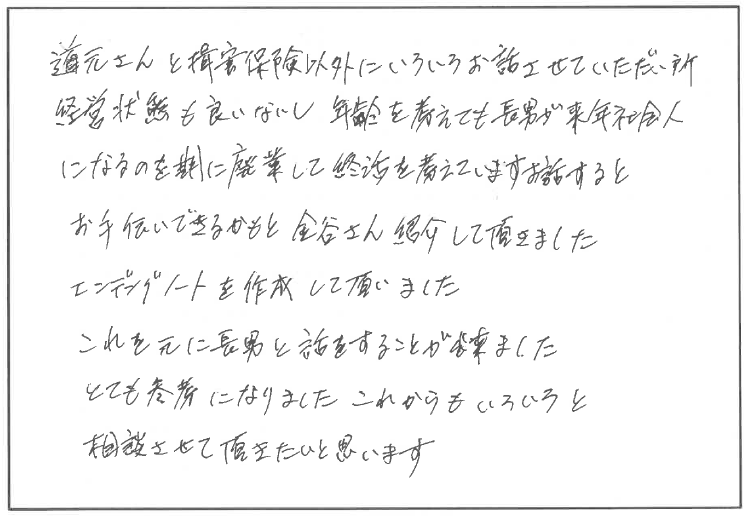 道元さんと損害保険以外にいろいろお話させていただい所
経営状態も良いないし 年齢を考えても長男が来年社会人
になるのを期に廃業して終活を考えていますお話すると
お手伝いできるかもと 金谷さん紹介して頂きました
エンディングノートを作成して頂いました
これを元に長男と話をすることが出来ました
とても参考になりました これからもいろいろと
相談させて頂きたいと思います